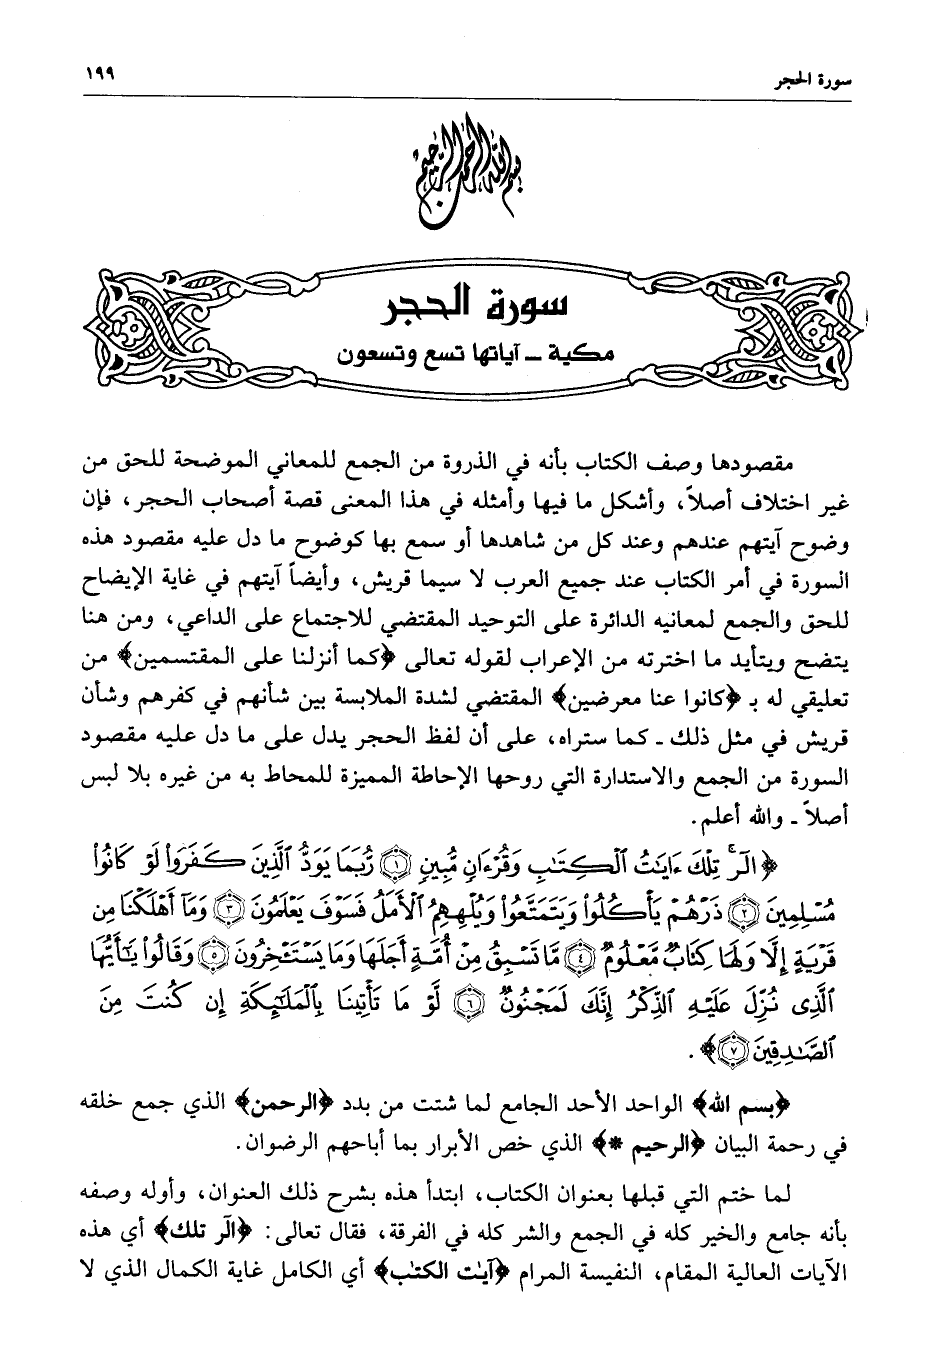 سورة الحجر
١٩٩
بسم الله الرحمن الرحيم
سورة الحجر
مكية ــ آياتها تسع وتسعون
مقصودها وصف الكتاب بأنه في الذروة من الجمع للمعاني الموضحة للحق من
غير اختلاف أصلاً، وأشكل ما فيها وأمثله في هذا المعنى قصة أصحاب الحجر، فإن
وضوح آيتهم عندهم وعند كل من شاهدها أو سمع بها كوضوح ما دل عليه مقصود هذه
السورة في أمر الكتاب عند جميع العرب لا سيما قريش، وأيضاً آيتهم في غاية الإيضاح
للحق والجمع لمعانيه الدائرة على التوحيد المقتضي للاجتماع على الداعي، ومن هنا
يتضح ويتأيد ما اخترته من الإعراب لقوله تعالى ﴿كما أنزلنا على المقتسمين﴾ من
تعليقي له بـ ﴿كانوا عنا معرضين﴾ المقتضي لشدة الملابسة بين شأنهم في كفرهم وشأن
قريش في مثل ذلك ـ كما ستراه، على أن لفظ الحجر يدل على ما دل عليه مقصود
السورة من الجمع والاستدارة التي روحها الإحاطة المميزة للمحاط به من غيره بلا لبس
أصلاً ـ والله أعلم.
﴿الٓرۚ تِلْكَ ءَايَٰتُ ٱلْكِتَٰبِ وَقُرْءَانٍ مُّبِينٍ ١ رُّبَمَا يَوَدُّ ٱلَّذِينَ كَفَرُوا۟ لَوْ كَانُوا۟
مُسْلِمِينَ ٢ ذَرْهُمْ يَأْكُلُوا۟ وَيَتَمَتَّعُوا۟ وَيُلْهِهِمُ ٱلْأَمَلُ فَسَوْفَ يَعْلَمُونَ ٣ وَمَآ أَهْلَكْنَا مِن
قَرْيَةٍ إِلَّا وَلَهَا كِتَابٌ مَّعْلُومٌ ٤ مَّا تَسْبِقُ مِنْ أُمَّةٍ أَجَلَهَا وَمَا يَسْتَـْٔخِرُونَ ٥ وَقَالُوا۟ يَٰٓأَيُّهَا
ٱلَّذِى نُزِّلَ عَلَيْهِ ٱلذِّكْرُ إِنَّكَ لَمَجْنُونٌ ٦ لَّوْ مَا تَأْتِينَا بِٱلْمَلَٰٓئِكَةِ إِن كُنتَ مِنَ
ٱلصَّٰدِقِينَ ٧﴾.
﴿بسم الله﴾ الواحد الأحد الجامع لما شتت من بدد ﴿الرحمن﴾ الذي جمع خلقه
في رحمة البيان ﴿الرحيم *﴾ الذي خص الأبرار بما أباحهم الرضوان.
لما ختم التي قبلها بعنوان الكتاب، ابتدأ هذه بشرح ذلك العنوان، وأوله وصفه
بأنه جامع والخير كله في الجمع والشر كله في الفرقة، فقال تعالى: ﴿الٓر تلك﴾ أي هذه
الآيات العالية المقام، النفيسة المرام ﴿آيٰت الكتٰب﴾ أي الكامل غاية الكمال الذي لا